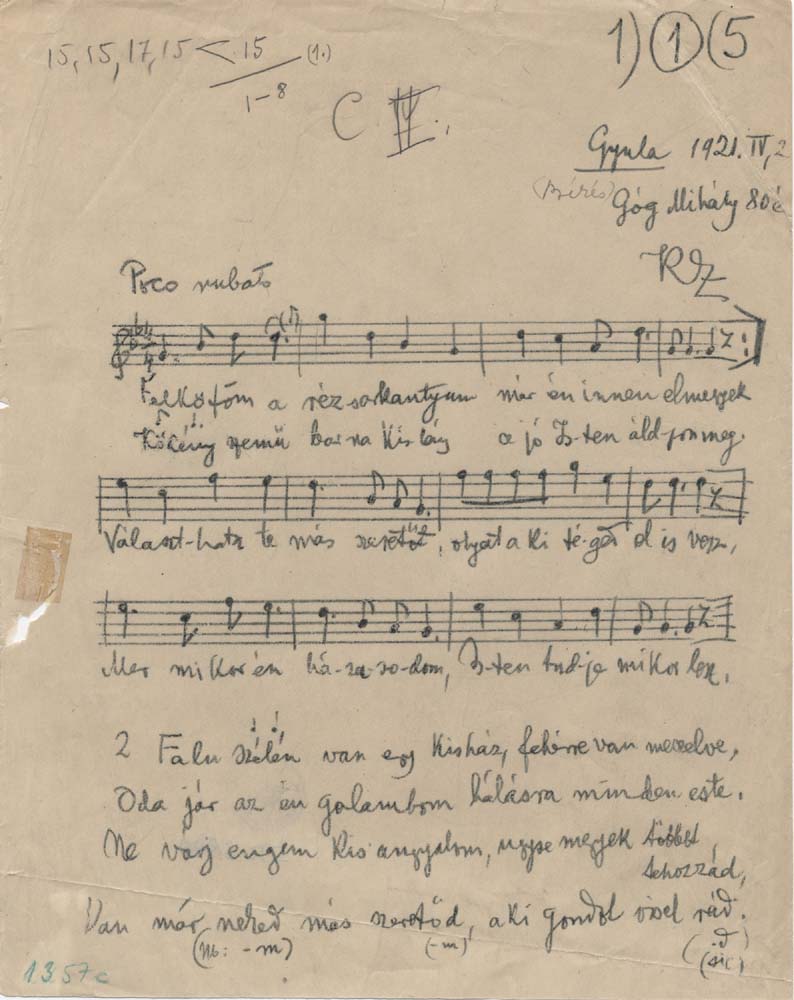 15, 15, 17, 15 < 15 (1.)
1-8
1) 1 (5
C IV.,
Gyula 1921. IV, 2
(Békés) Góg Mihály 80 é
Poco rubato
Felkötöm a rézsarkantyum már én innen elmegyek
Kökény szemü barna kis lány a jó Is-ten áld-jon meg.
Választ-hatz te más szeretőt, olyat a ki té-ged el is vesz,
Mer mikor én há-za-so-dom, Is-ten tud-je mikor lesz,
2 Falu szélén van egy kisház, fehérre van meszelve,
Oda jár az én galambom hálásra minden este.
Ne várj engem kis angyalom, ugyse megyek többet
tehozzád,
Van már neked más szeretőd, a ki gondot visel rád.
(Nb: -m) (-m) (.d
(sic)
1357c